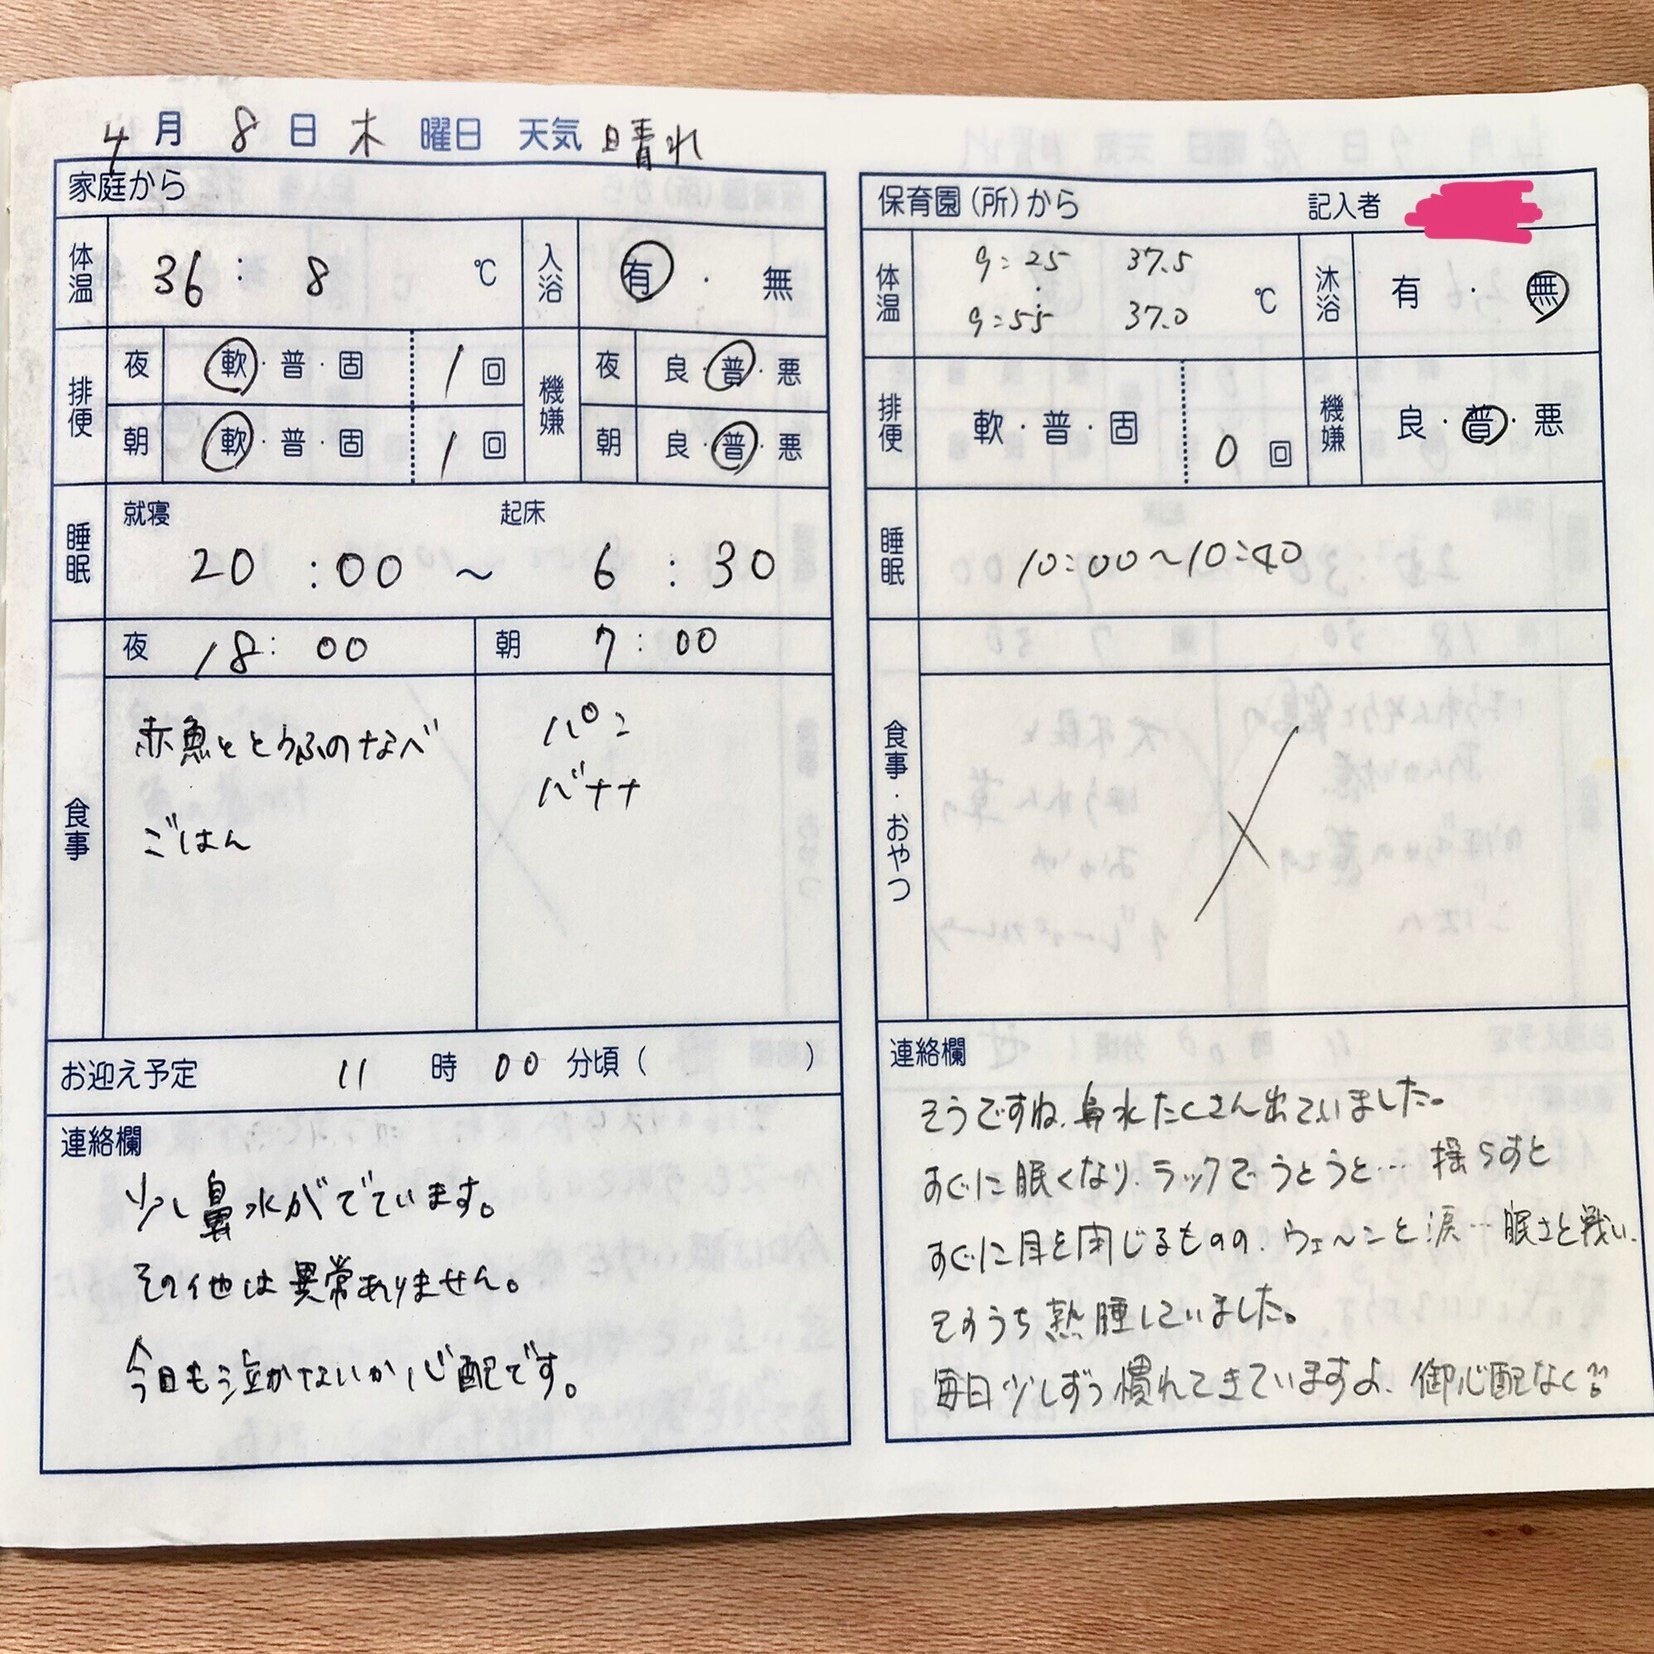 4月 8日 木曜日 天気 晴れ
家庭から
体温 36:8 ℃ 入浴 有・無
排便 夜 軟・普・固 1回 機嫌 夜 良・普・悪
朝 軟・普・固 1回 朝 良・普・悪
睡眠 就寝 起床
20:00 ~ 6:30
食事 夜 18:00 朝 7:00
赤魚ととうふのなべ パン
バナナ
ごはん
お迎え予定 11時00分頃( )
連絡欄
少し鼻水がでています。
その他は異常ありません。
今日も泣かないか心配です。
保育園(所)から 記入者
体温 9:25 37.5 ℃ 沐浴 有・無
9:55 37.0
排便 軟・普・固 0回 機嫌 良・普・悪
睡眠 10:00~10:40
食事・おやつ
連絡欄
そうですね、鼻水たくさん出ていました。
すぐに眠くなり、ラックでうとうと… 揺らすと
すぐに目を閉じるものの、ウェ〜ンと涙… 眠さと戦い、
そのうち熟睡していました。
毎日少しずつ慣れてきていますよ、御心配なく